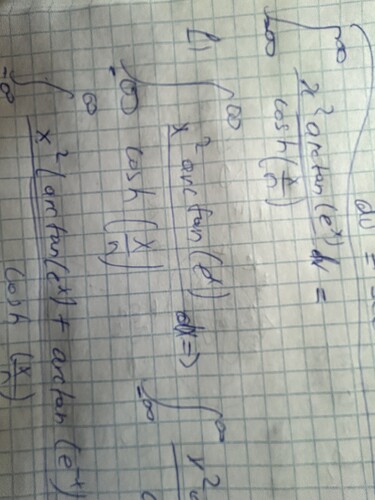 ∫_{-∞}^{∞} x² arctan(eˣ) / cosh(x/n) dx =
L) ∫_{-∞}^{∞} x² arctan(eˣ) / cosh(x/n) dx ⇒ ∫_{-∞}^{∞} x²
∫_{-∞}^{∞} x² (arctan(eˣ) + arctan(e⁻ˣ) / cosh(x/n)